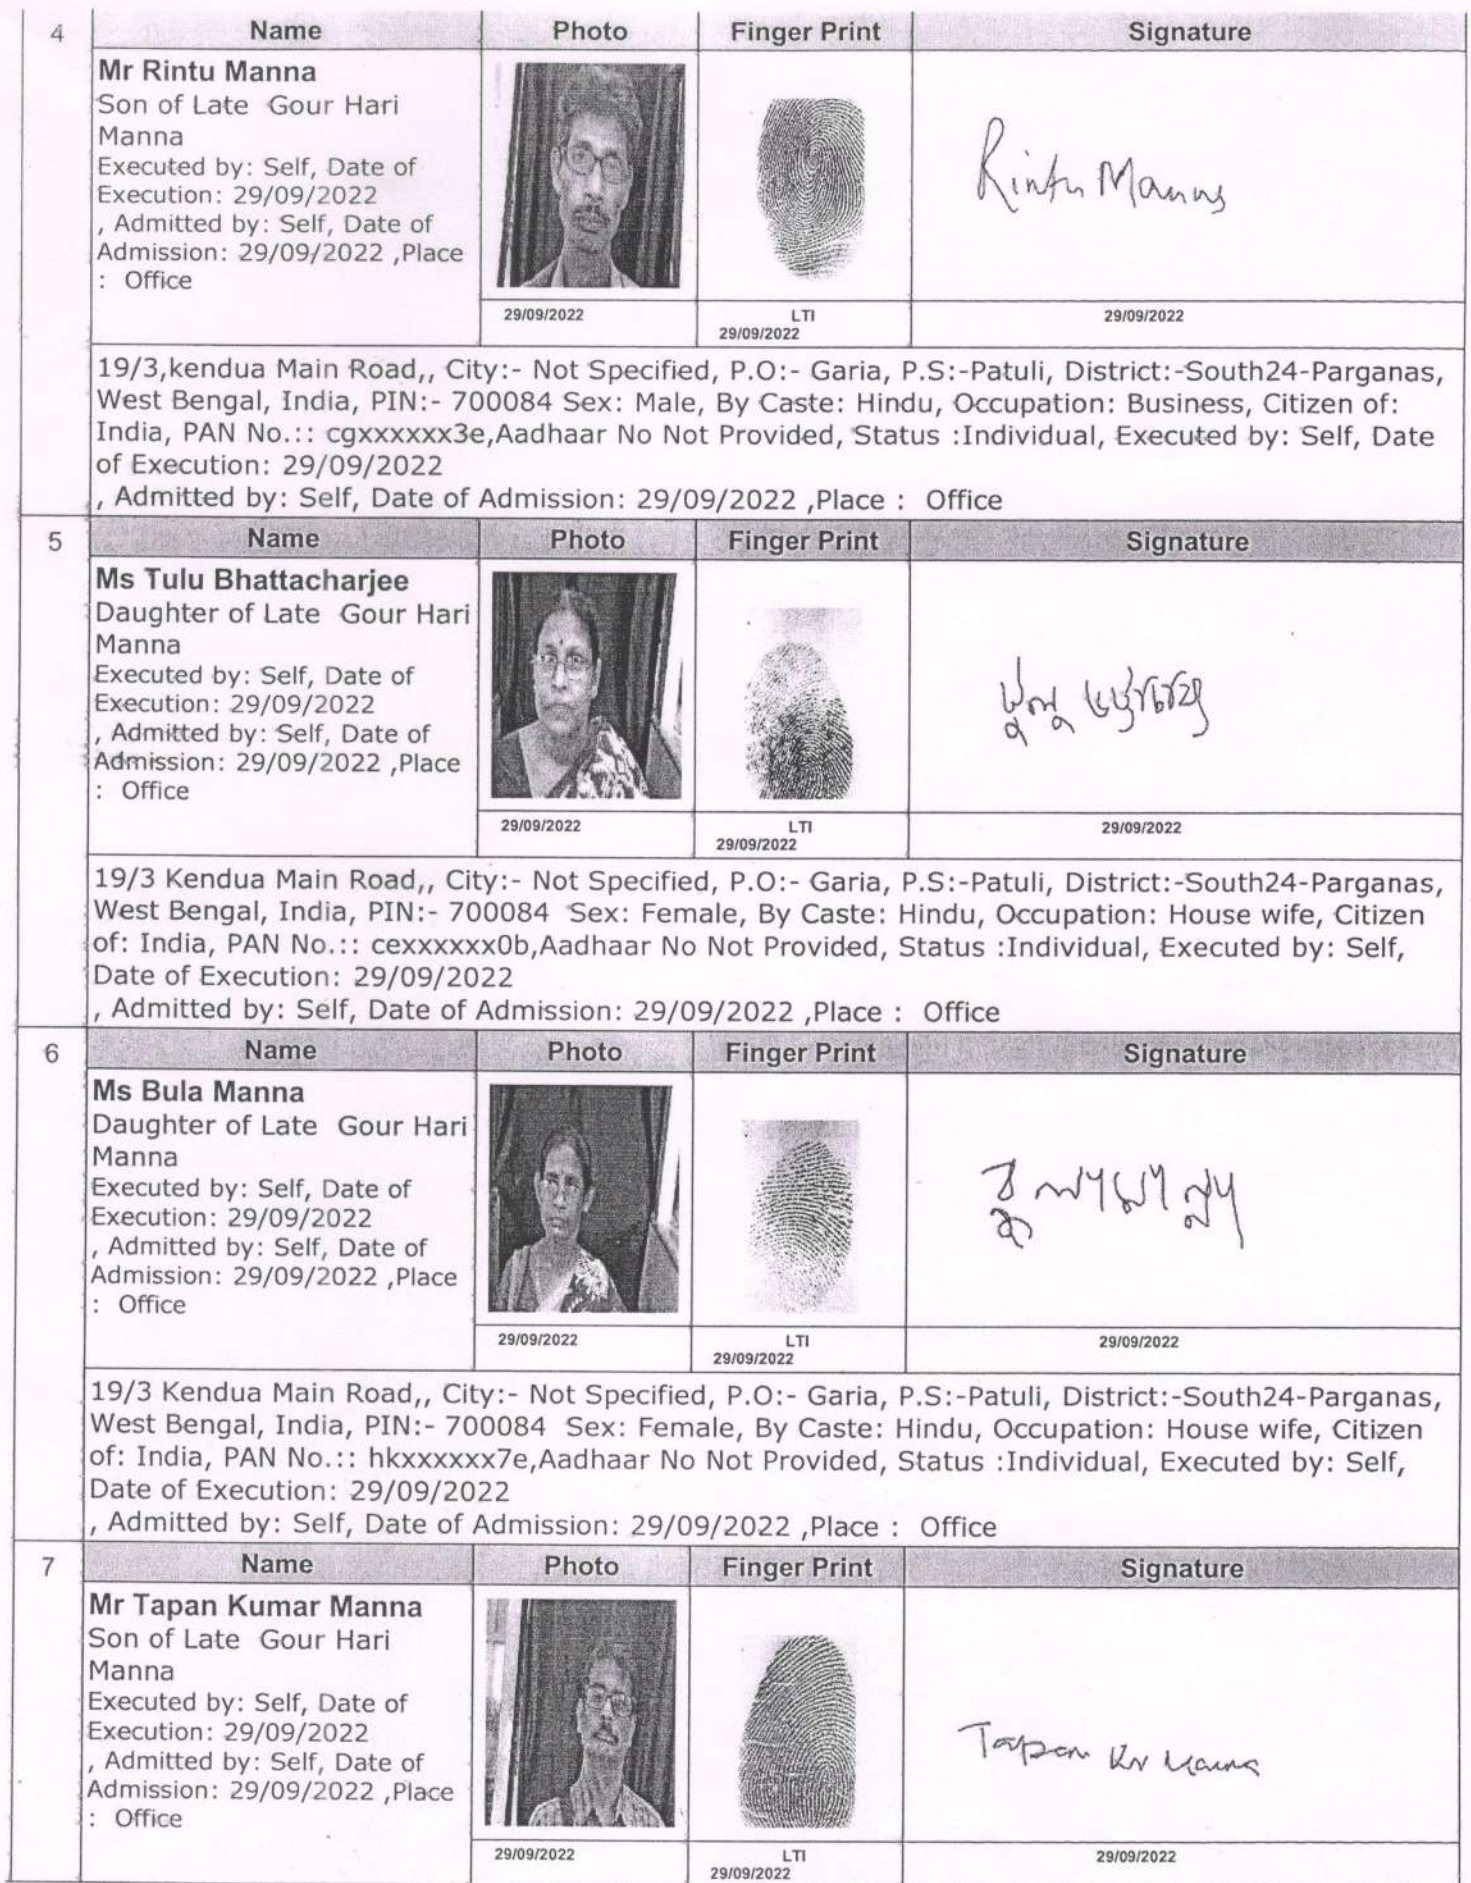 4 Name Photo Finger Print Signature
Mr Rintu Manna
Son of Late Gour Hari
Manna
Executed by: Self, Date of
Execution: 29/09/2022
, Admitted by: Self, Date of
Admission: 29/09/2022 ,Place
: Office
Rintu Manna
29/09/2022 LTI 29/09/2022
29/09/2022
19/3,kendua Main Road,, City:- Not Specified, P.O:- Garia, P.S:-Patuli, District:-South24-Parganas,
West Bengal, India, PIN:- 700084 Sex: Male, By Caste: Hindu, Occupation: Business, Citizen of:
India, PAN No.:: cgxxxxxx3e,Aadhaar No Not Provided, Status :Individual, Executed by: Self, Date
of Execution: 29/09/2022
, Admitted by: Self, Date of Admission: 29/09/2022 ,Place : Office
5 Name Photo Finger Print Signature
Ms Tulu Bhattacharjee
Daughter of Late Gour Hari
Manna
Executed by: Self, Date of
Execution: 29/09/2022
, Admitted by: Self, Date of
Admission: 29/09/2022 ,Place
: Office
29/09/2022 LTI 29/09/2022
29/09/2022
19/3 Kendua Main Road,, City:- Not Specified, P.O:- Garia, P.S:-Patuli, District:-South24-Parganas,
West Bengal, India, PIN:- 700084 Sex: Female, By Caste: Hindu, Occupation: House wife, Citizen
of: India, PAN No.:: cexxxxxx0b,Aadhaar No Not Provided, Status :Individual, Executed by: Self,
Date of Execution: 29/09/2022
, Admitted by: Self, Date of Admission: 29/09/2022 ,Place : Office
6 Name Photo Finger Print Signature
Ms Bula Manna
Daughter of Late Gour Hari
Manna
Executed by: Self, Date of
Execution: 29/09/2022
, Admitted by: Self, Date of
Admission: 29/09/2022 ,Place
: Office
29/09/2022 LTI 29/09/2022
29/09/2022
19/3 Kendua Main Road,, City:- Not Specified, P.O:- Garia, P.S:-Patuli, District:-South24-Parganas,
West Bengal, India, PIN:- 700084 Sex: Female, By Caste: Hindu, Occupation: House wife, Citizen
of: India, PAN No.:: hkxxxxxx7e,Aadhaar No Not Provided, Status :Individual, Executed by: Self,
Date of Execution: 29/09/2022
, Admitted by: Self, Date of Admission: 29/09/2022 ,Place : Office
7 Name Photo Finger Print Signature
Mr Tapan Kumar Manna
Son of Late Gour Hari
Manna
Executed by: Self, Date of
Execution: 29/09/2022
, Admitted by: Self, Date of
Admission: 29/09/2022 ,Place
: Office
Tapan Kr Manna
29/09/2022 LTI 29/09/2022
29/09/2022